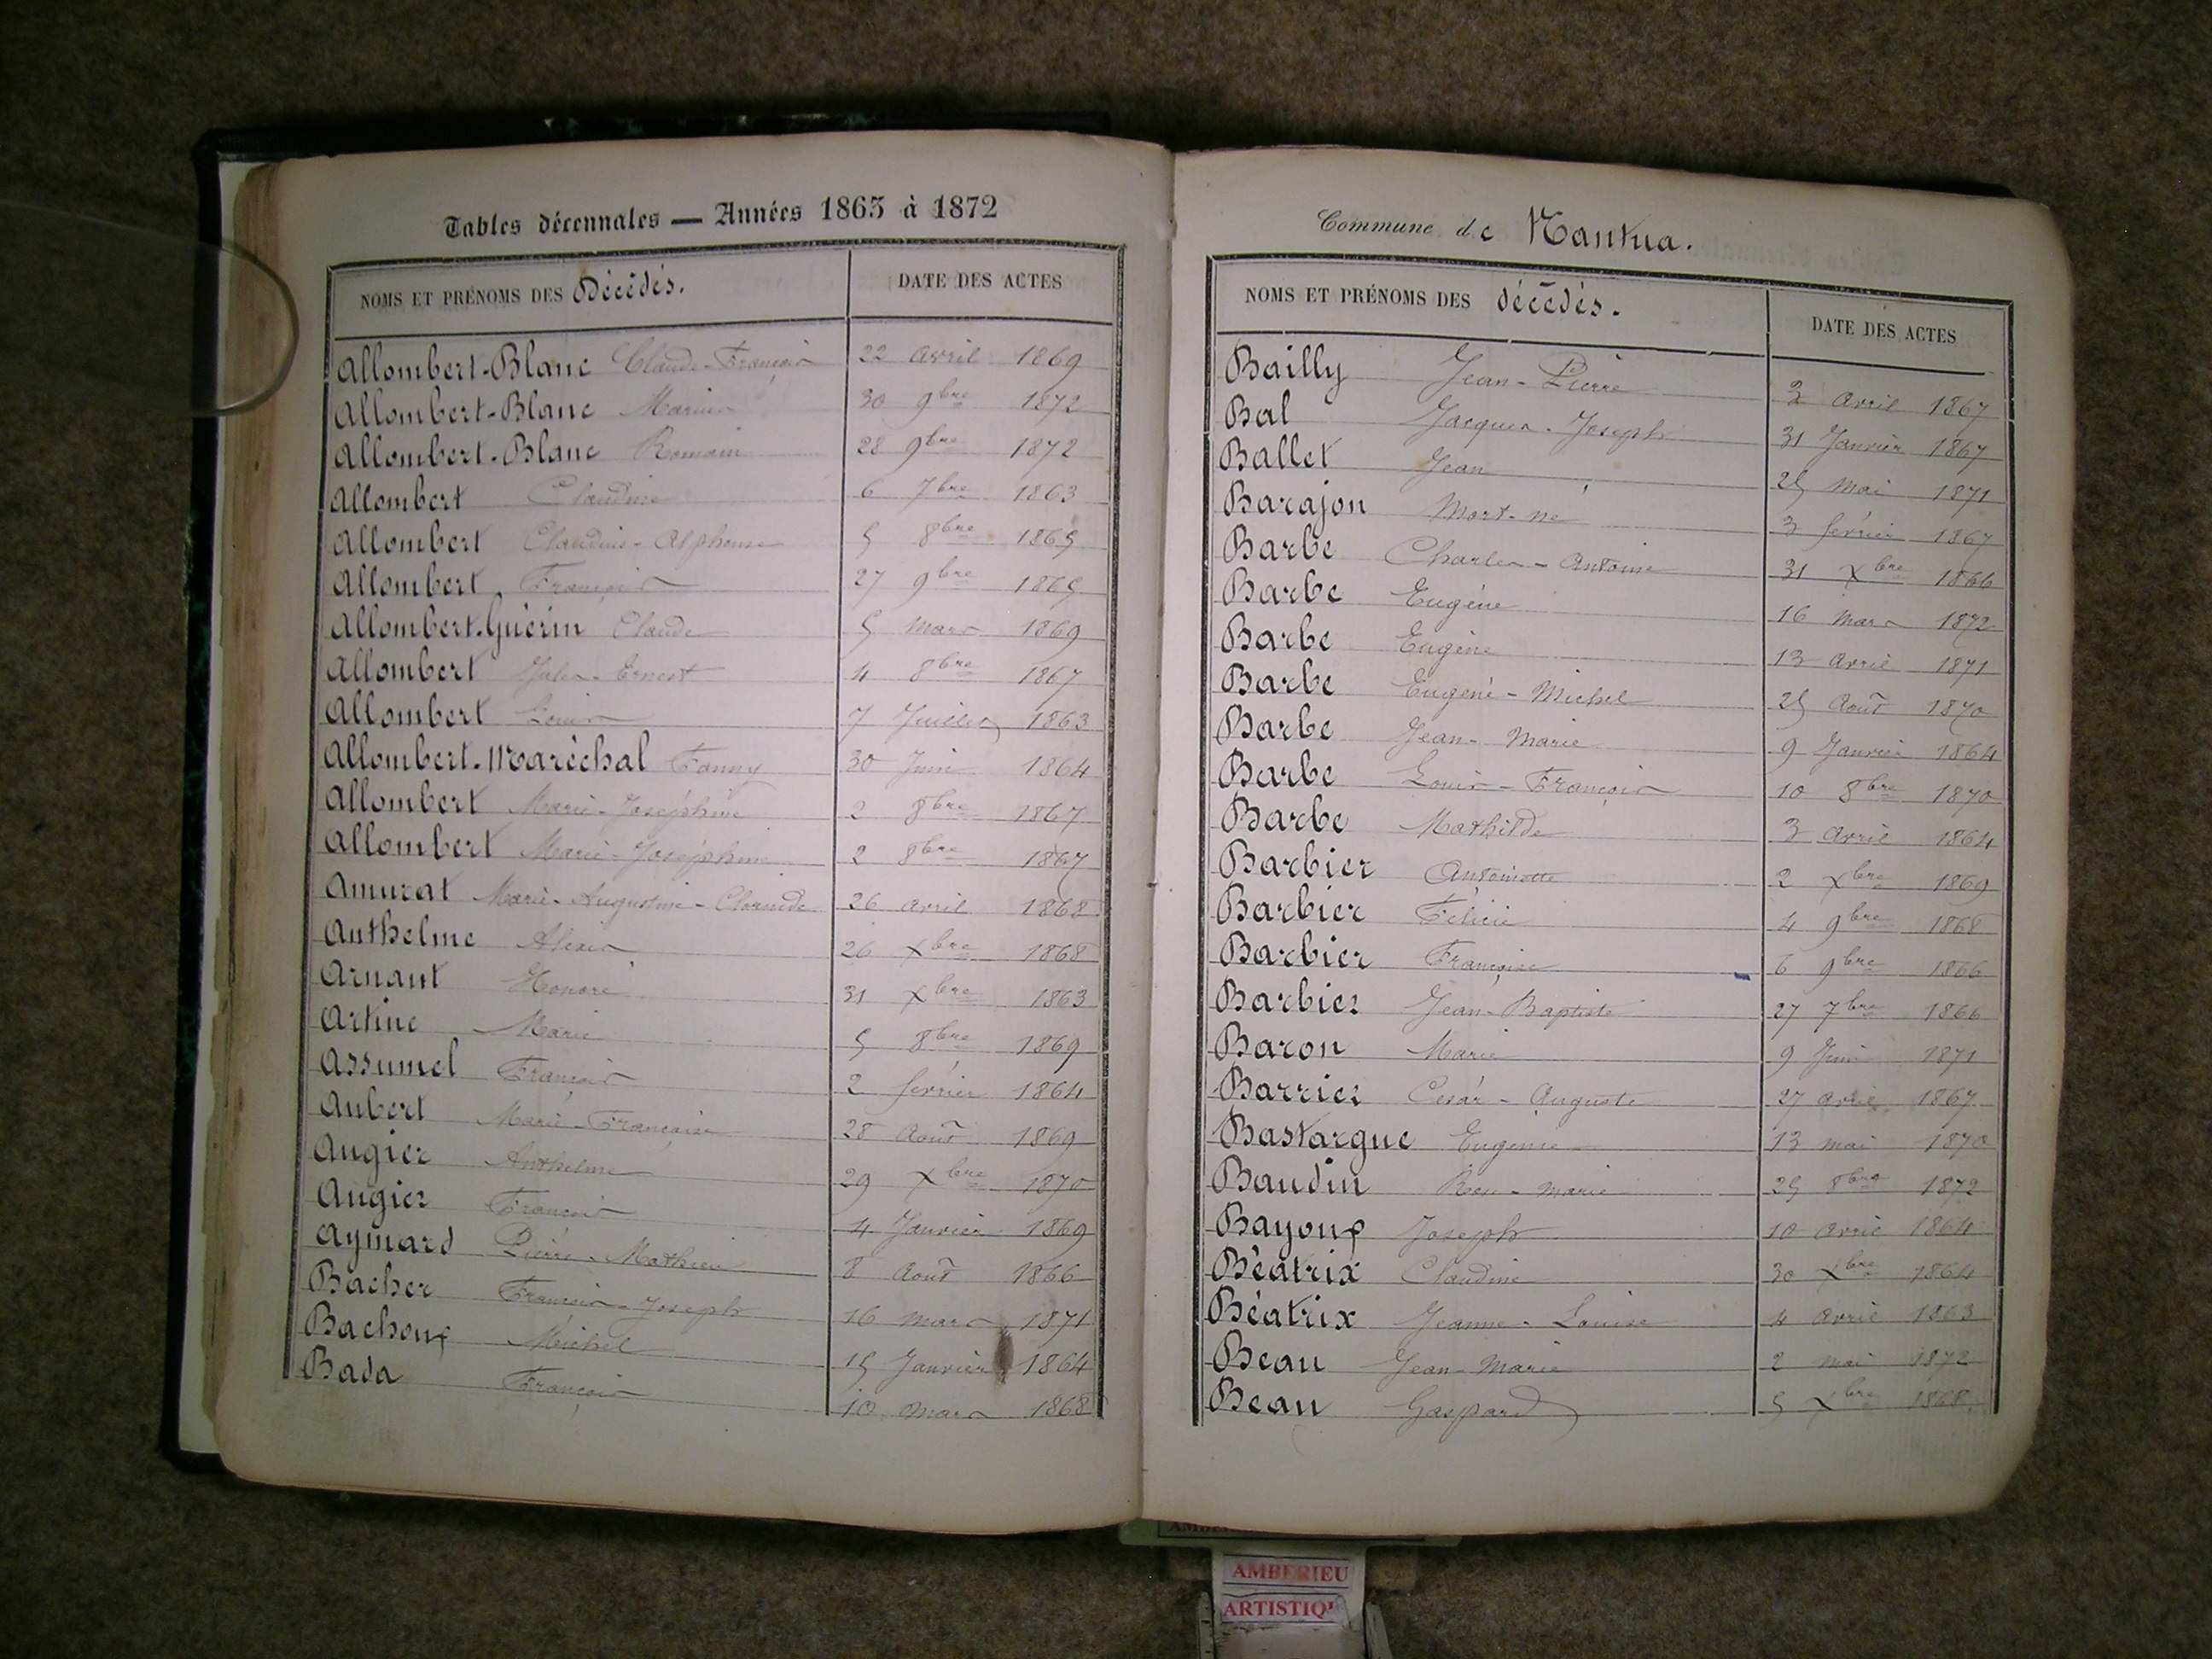 Tables décennales — Années 1863 à 1872
NOMS ET PRÉNOMS DES Décédés. DATE DES ACTES
Allombert-Blanc Claude-François 22 avril 1869
Allombert-Blanc Marius 30 9bre 1872
Allombert-Blanc Romain 28 9bre 1872
Allombert Claudine 6 7bre 1863
Allombert Claudius-Alphonse 5 8bre 1865
Allombert François 27 9bre 1865
Allombert-Guérin Claude 5 mars 1869
Allombert Jules-Ernest 4 8bre 1867
Allombert Louis 7 Juillet 1863
Allombert-Maréchal Fanny 30 Juin 1864
Allombert Marie-Joséphine 2 8bre 1867
Allombert Marie-Joséphine 2 8bre 1867
Amurat Marie-Augustine- 26 avril 1868
Anthelme Alexis 26 Xbre 1868
Arnaut Honoré 31 Xbre 1863
Artine Marie 5 8bre 1869
Assumel François 2 février 1864
Aubert Marie-Françoise 28 Août 1869
Augier Anthelme 29 Xbre 1870
Augier François 4 Janvier 1869
Aymard Pierre-Mathieu 8 Août 1866
Bacher François-Joseph 16 mars 1871
Bachoux Michel 15 Janvier 1864
Bada François 10 mars 1868
Commune de Nantua.
NOMS ET PRÉNOMS DES décédés. DATE DES ACTES
Bailly Jean-Pierre 3 avril 1867
Bal Jacques-Joseph 31 Janvier 1867
Ballet Jean 25 mai 1871
Barajon Mort-né 3 février 1867
Barbe Charles-Antoine 31 Xbre 1866
Barbe Eugène 16 mars 1872
Barbe Eugène 13 avril 1871
Barbe Eugène-Michel 25 Août 1870
Barbe Jean-Marie 9 Janvier 1864
Barbe Louis-François 10 8bre 1870
Barbe Mathilde 3 avril 1864
Barbier Antoinette 2 Xbre 1869
Barbier Félicie 4 9bre 1868
Barbier Françoise 6 9bre 1866
Barbier Jean-Baptiste 27 7bre 1866
Baron Marie 9 Juin 1871
Barrier César-Auguste 27 avril 1867
Bastargue Eugénie 13 mai 1870
Baudin marie 25 8bre 1872
Bayoux Joseph 10 avril 1864
Béatrix Claudine 30 Xbre 1864
Béatrix Jeanne-Louise 4 avril 1863
Beau Jean-Marie 2 mai 1872
Beau Gaspard 5 Xbre 1868
AMBERIEU
ARTISTIQ